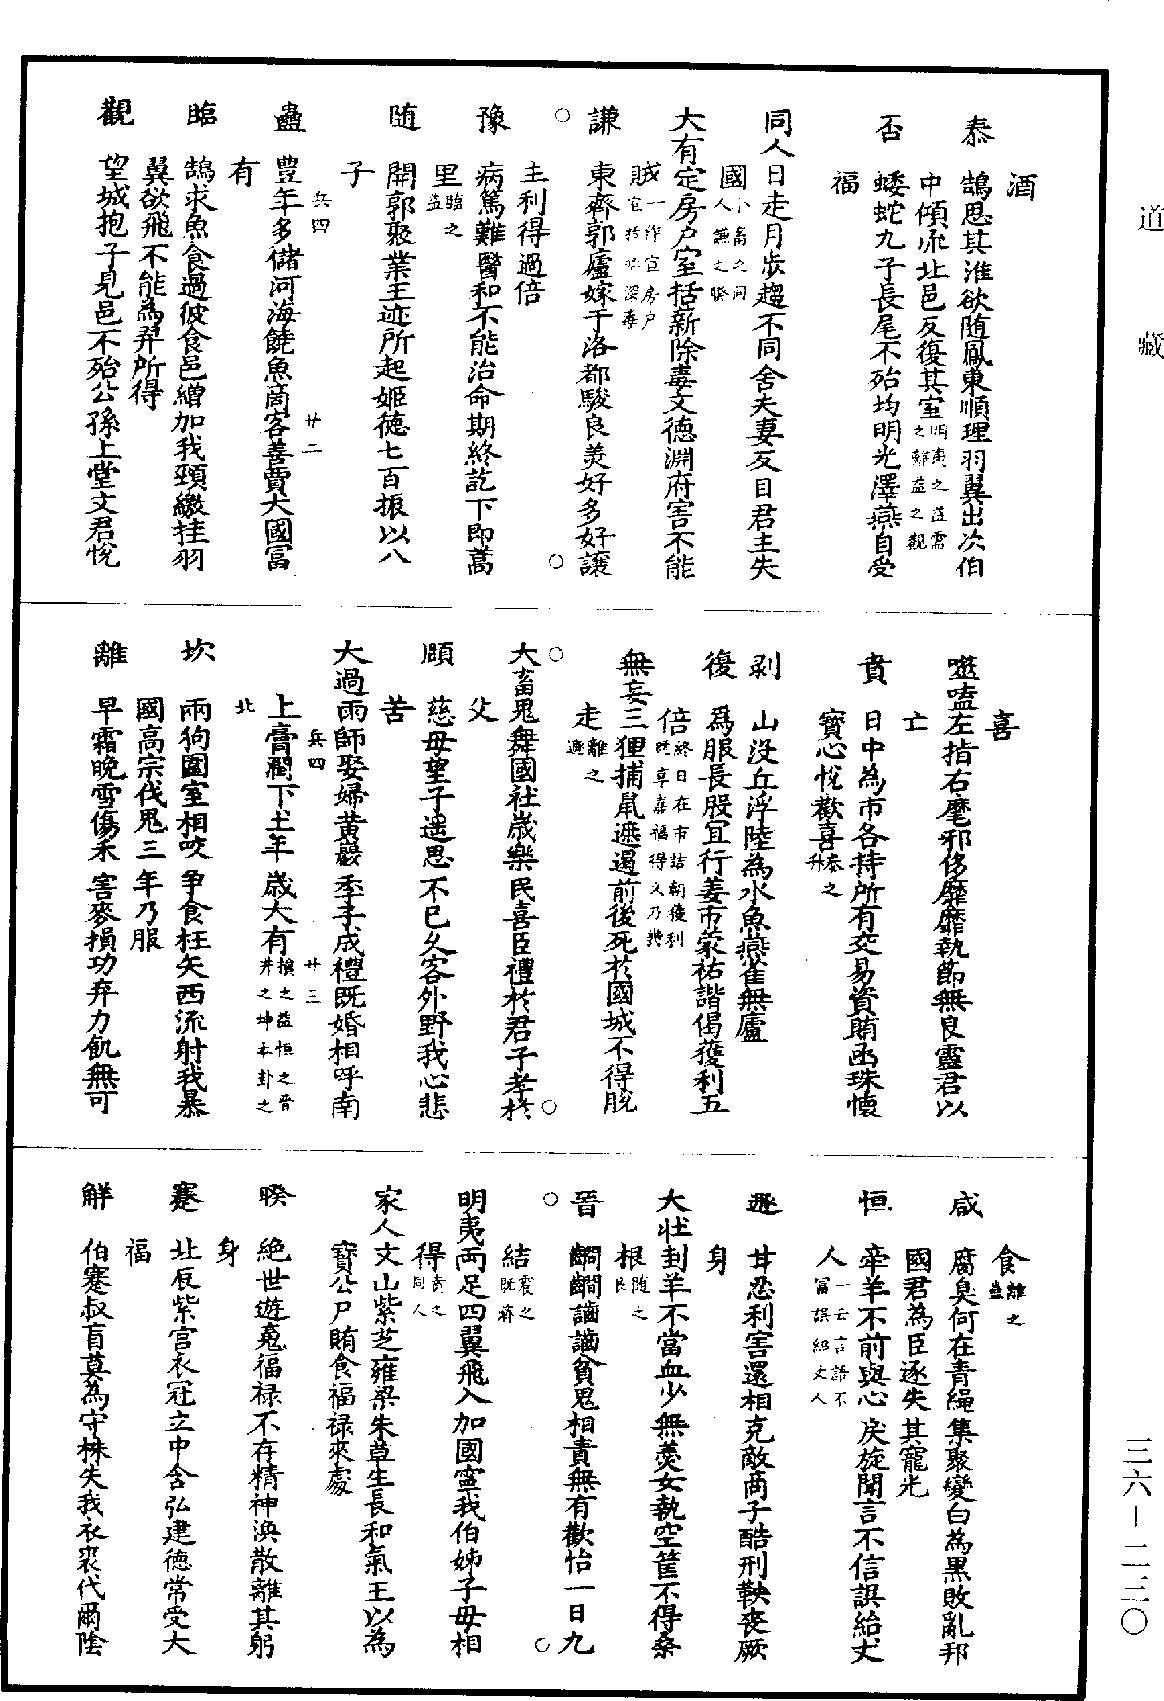 道藏
酒
泰　鵠思其淮欲随鳳東順理羽翼出次伯
中傾所北邑反復其室明夷之益需之離益之觀
否　蜲蛇九子長尾不殆均明光澤燕自受
福
同人日走月步趨不同舍夫妻反目君主失
國小畜之同人無之暌
大有定房户室括新除毒文德淵府害不能
賊一作宜房户
謙　東齊郭廬嫁于洛都駿良美好多好讓
主利得過倍
豫　病篤難醫和不能治命期終訖下即蒿
里臨之益
随　開郭聚業王迹所起姬德七百振以八
子
兵四　廿二
蠱　豊年多儲河海饒魚商客善賈大國冨
有
臨　鵠求魚食過彼食邑繒加我頸繳挂羽
翼欲飛不能為羿所得
觀　望城抱子見邑不殆公孫上堂文君悅
喜
噬嗑左指右麾邪侈靡靡執節無良靈君以
亡
賁　日中為市各持所有交易資賄函珠懷
寳心悅歡喜泰之升
剥　山没丘浮陸為水魚燕雀無廬
復　爲服長股宜行姜市蒙祐諧偈獲利五
倍終日在市詰朝獲利既享嘉福得义乃
無妄三狸捕鼠遮遏前後死於國城不得脫
走離之遯
大畜鬼舞國社歲樂民喜臣禮於君子孝於
父
頤　慈母望子遥思不已久客外野我心悲
苦
大過雨師娶婦黄巖季子成禮既婚相呼南
兵四　廿三
上膏潤下土年歲大有損之益恒之晉井之坤本卦之
北
坎　兩狗圄室相咬争食枉矢西流射我暴
國高宗伐鬼三年乃服
離　早霜晚雪傷禾害麥損功弃力飢無可
食離之蠱
咸　腐臭何在青繩集聚變白為黒敗亂邦
國君為臣逐失其寵光
恒　牽羊不前與心戾旋聞言不信誤紿丈
人一云言語不冨誤紹丈人
遯　甘忍利害還相克敵商子酷刑鞅喪厥
身
大壯刲羊不當血少無羹女執空筐不得桑
根随之良
晉　齺齺齧齧貧鬼相責無有歡怡一日九
結震之既濟
明夷兩足四翼飛入加國寜我伯姊子母相
得賁之同人
家人文山紫芝雍梁朱草生長和氣王以為
寳公尸賄食福禄來處
睽　絶世遊䰟福禄不存精神渙散離其躬
身
蹇　北辰紫宫衣冠立中含弘建德常受大
福
觧　伯蹇叔盲莫為守株失我衣裘代爾陰
三六—二三〇